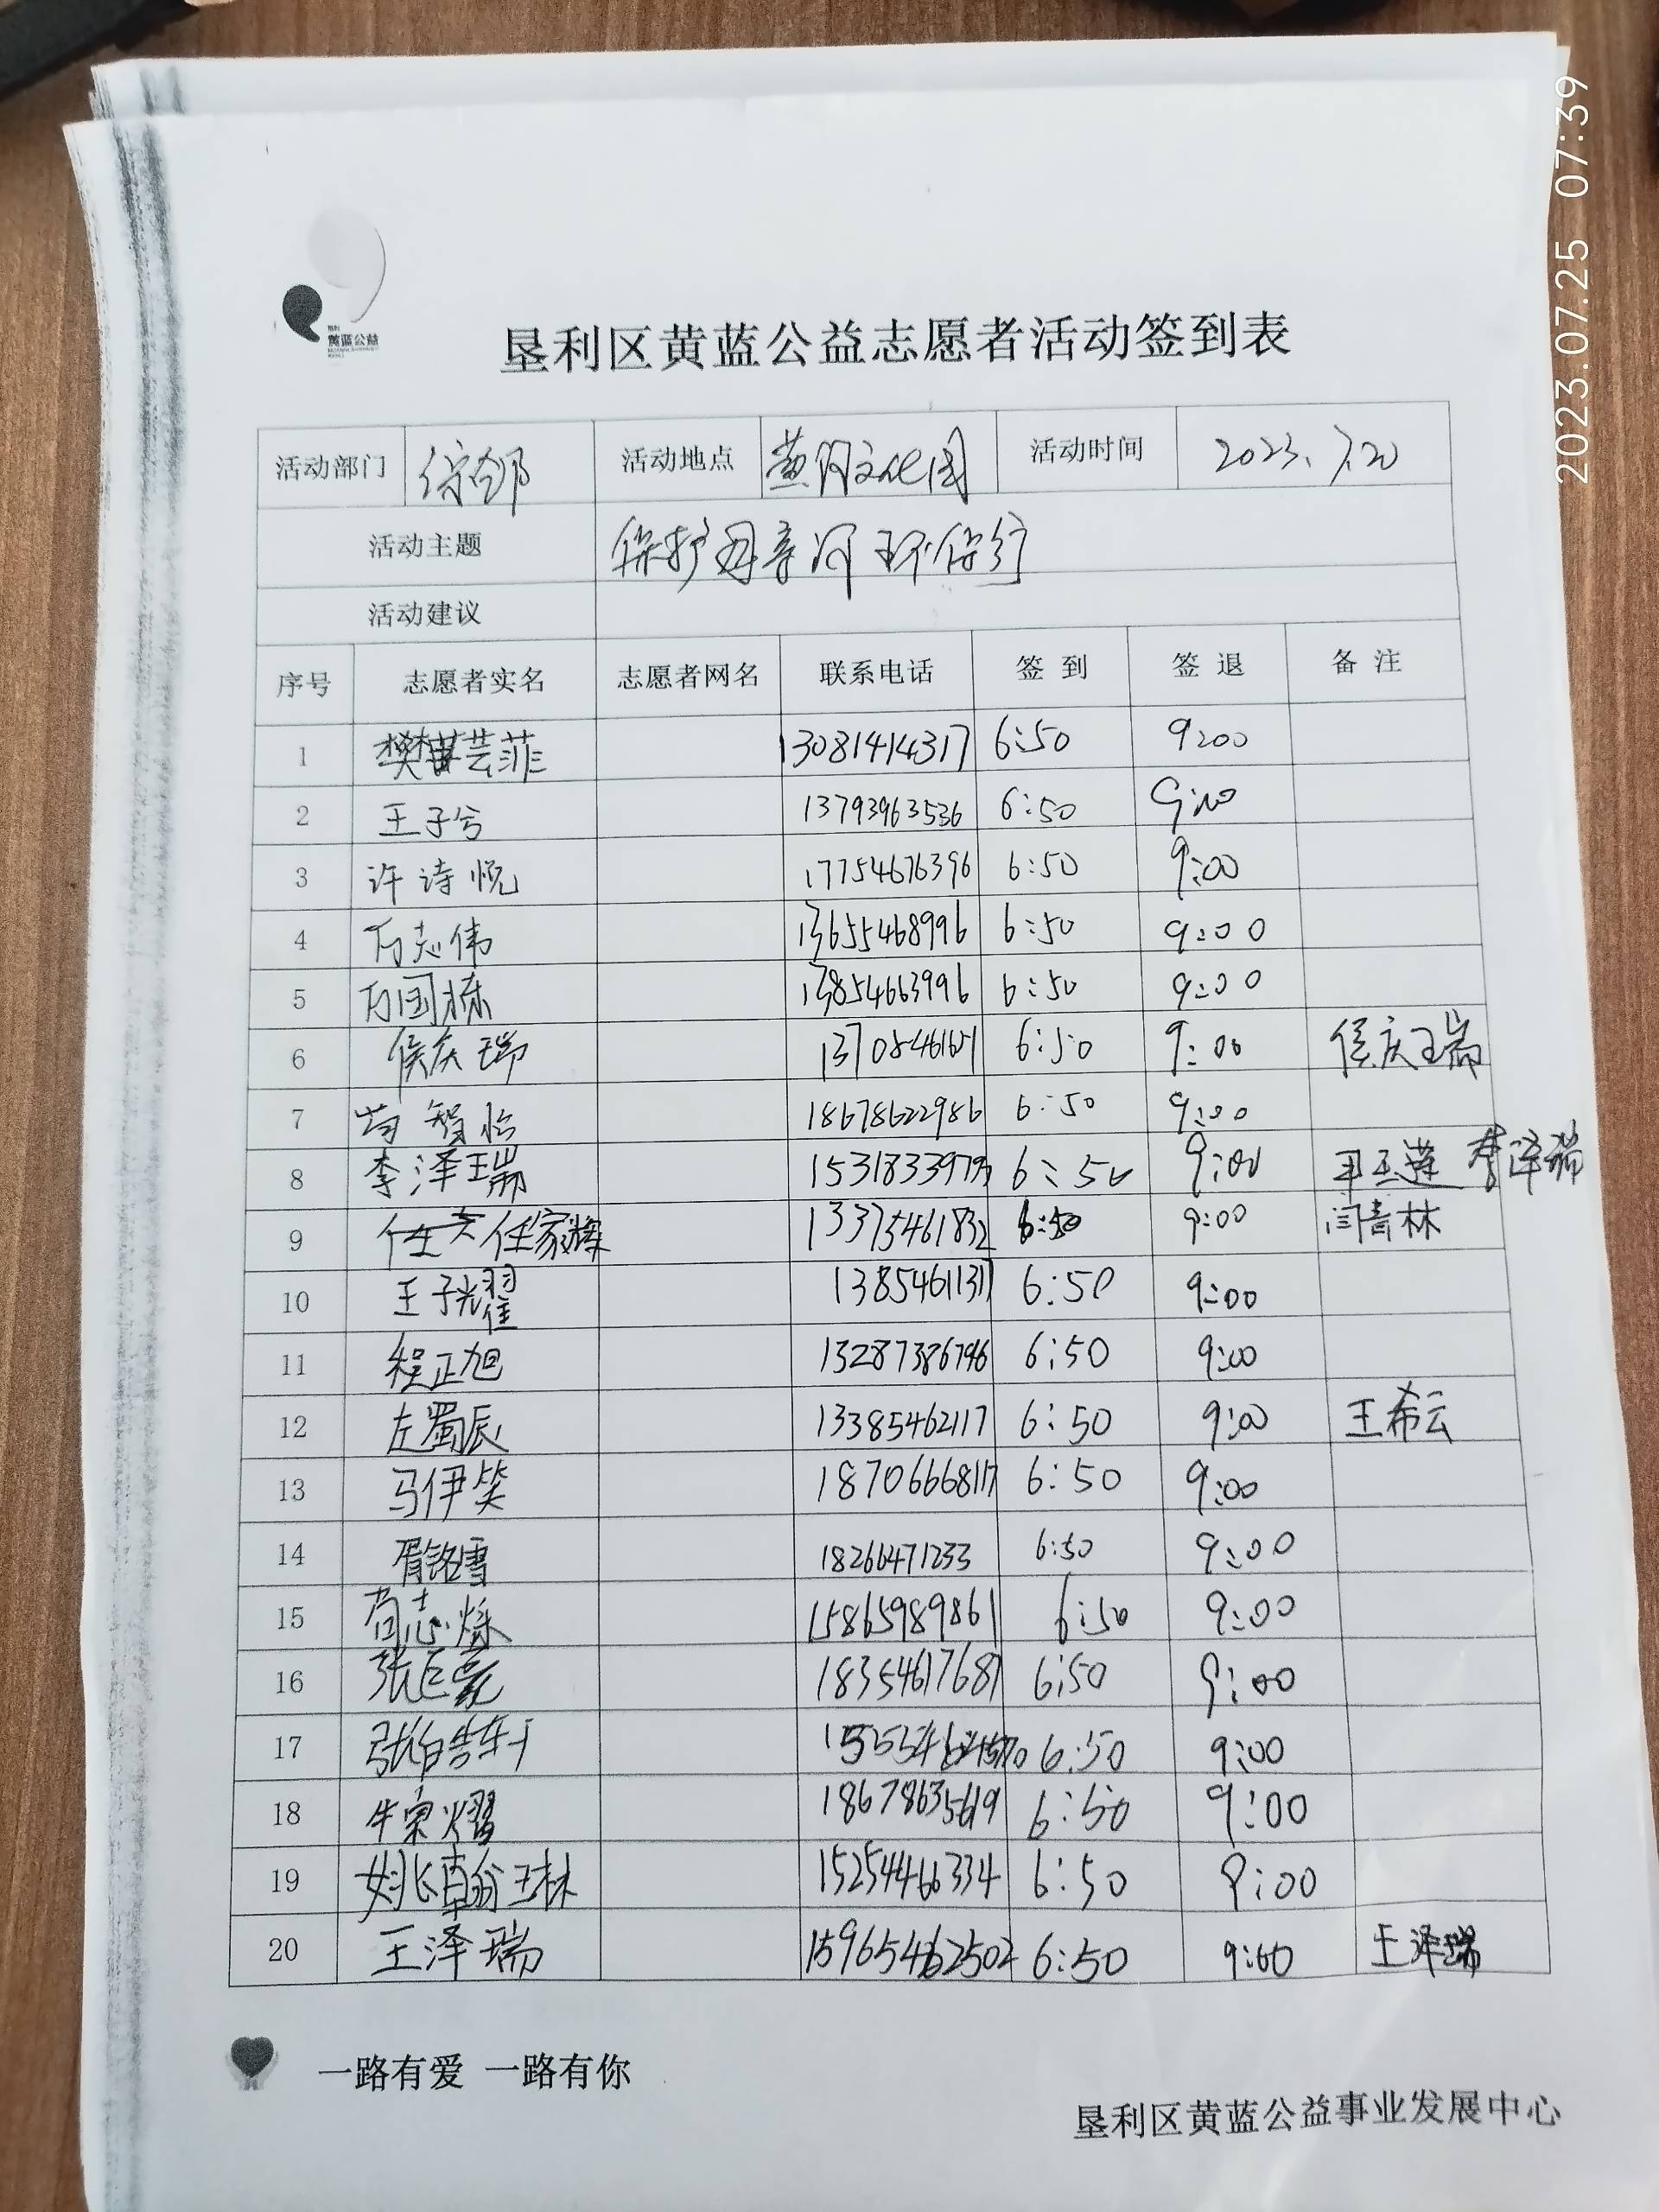 2023.07.25 07:39
黄蓝公益
垦利区黄蓝公益志愿者活动签到表
活动部门 综合部 活动地点 黄河文化园 活动时间 2023.7.20
活动主题 保护母亲河 环保行
活动建议
序号 志愿者实名 志愿者网名 联系电话 签到 签退 备注
1 樊芸菲 13081414317 6:50 9:00
2 王子兮 13793963536 6:50 9:00
3 许诗悦 17754676396 6:50 9:00
4 万志伟 13655468996 6:50 9:00
5 万国栋 13854663996 6:50 9:00
6 侯庆瑞 6:50 9:00 侯庆瑞
7 智怡 18678622986 6:50 9:00
8 李泽瑞 6:50 9:00 王玉莲 李泽瑞
9 任家辉 13375461832 6:50 9:00 闫青林
10 王子耀 13854611317 6:50 9:00
11 程正旭 13287386796 6:50 9:00
12 左蜀辰 13385462117 6:50 9:00 王希云
13 马伊笑 18706668117 6:50 9:00
14 胥铭雪 18266471233 6:50 9:00
15 尚志烁 15865989861 6:50 9:00
16 张巨豪 18354617687 6:50 9:00
17 6:50 9:00
18 牛 18678635619 6:50 9:00
19 姚 15254466334 6:50 9:00
20 王泽瑞 15965462502 6:50 9:00 王泽瑞
一路有爱 一路有你
垦利区黄蓝公益事业发展中心